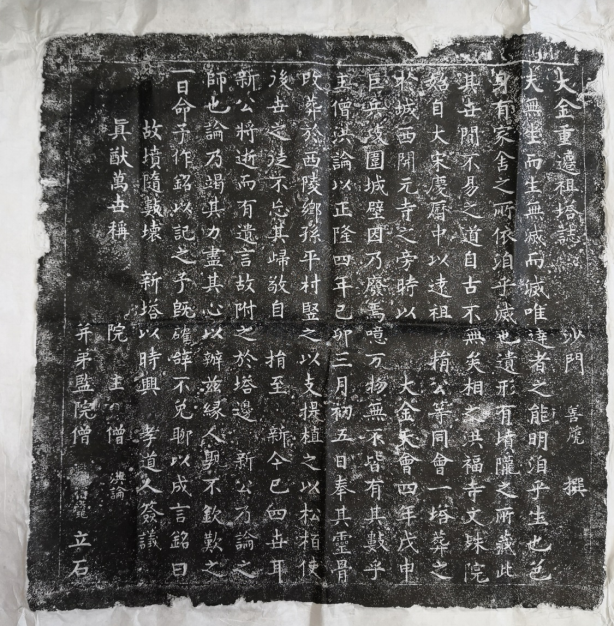 大金重遷祖塔誌 沙門 善 撰
夫無生而生無滅而滅唯達者之能明洎乎生也芭
身有家舍之所依洎乎滅也遺形有墳隴之所藏此
其世間不易之道自古不無矣相之洪福寺文殊院
始自大宋慶曆中以遠祖 㨂公等同會一塔葬之
於城西開元寺之旁時以 大金天會四年戊申
巨兵攻圍城壁因乃廢焉噫万物無不皆有其數乎
主僧洪論以正隆四年己卯三月初五日奉其靈骨
改葬於西陵鄉孫平村竪之以支提植之以松栢使
後世之徒不忘其歸敬自 㨂至 新今已四世耳
新公將逝而有遺言故附之於塔邊 新公乃論之
師也論乃竭其力盡其心以辦茲緣人㒰不欽歎之
一日命予作銘以記之予旣確辞不免聊以成言銘曰
故墳隨數壊 新塔以時興 孝道人僉議
眞猷萬世稱
院主僧 洪論
并弟監院僧 立石